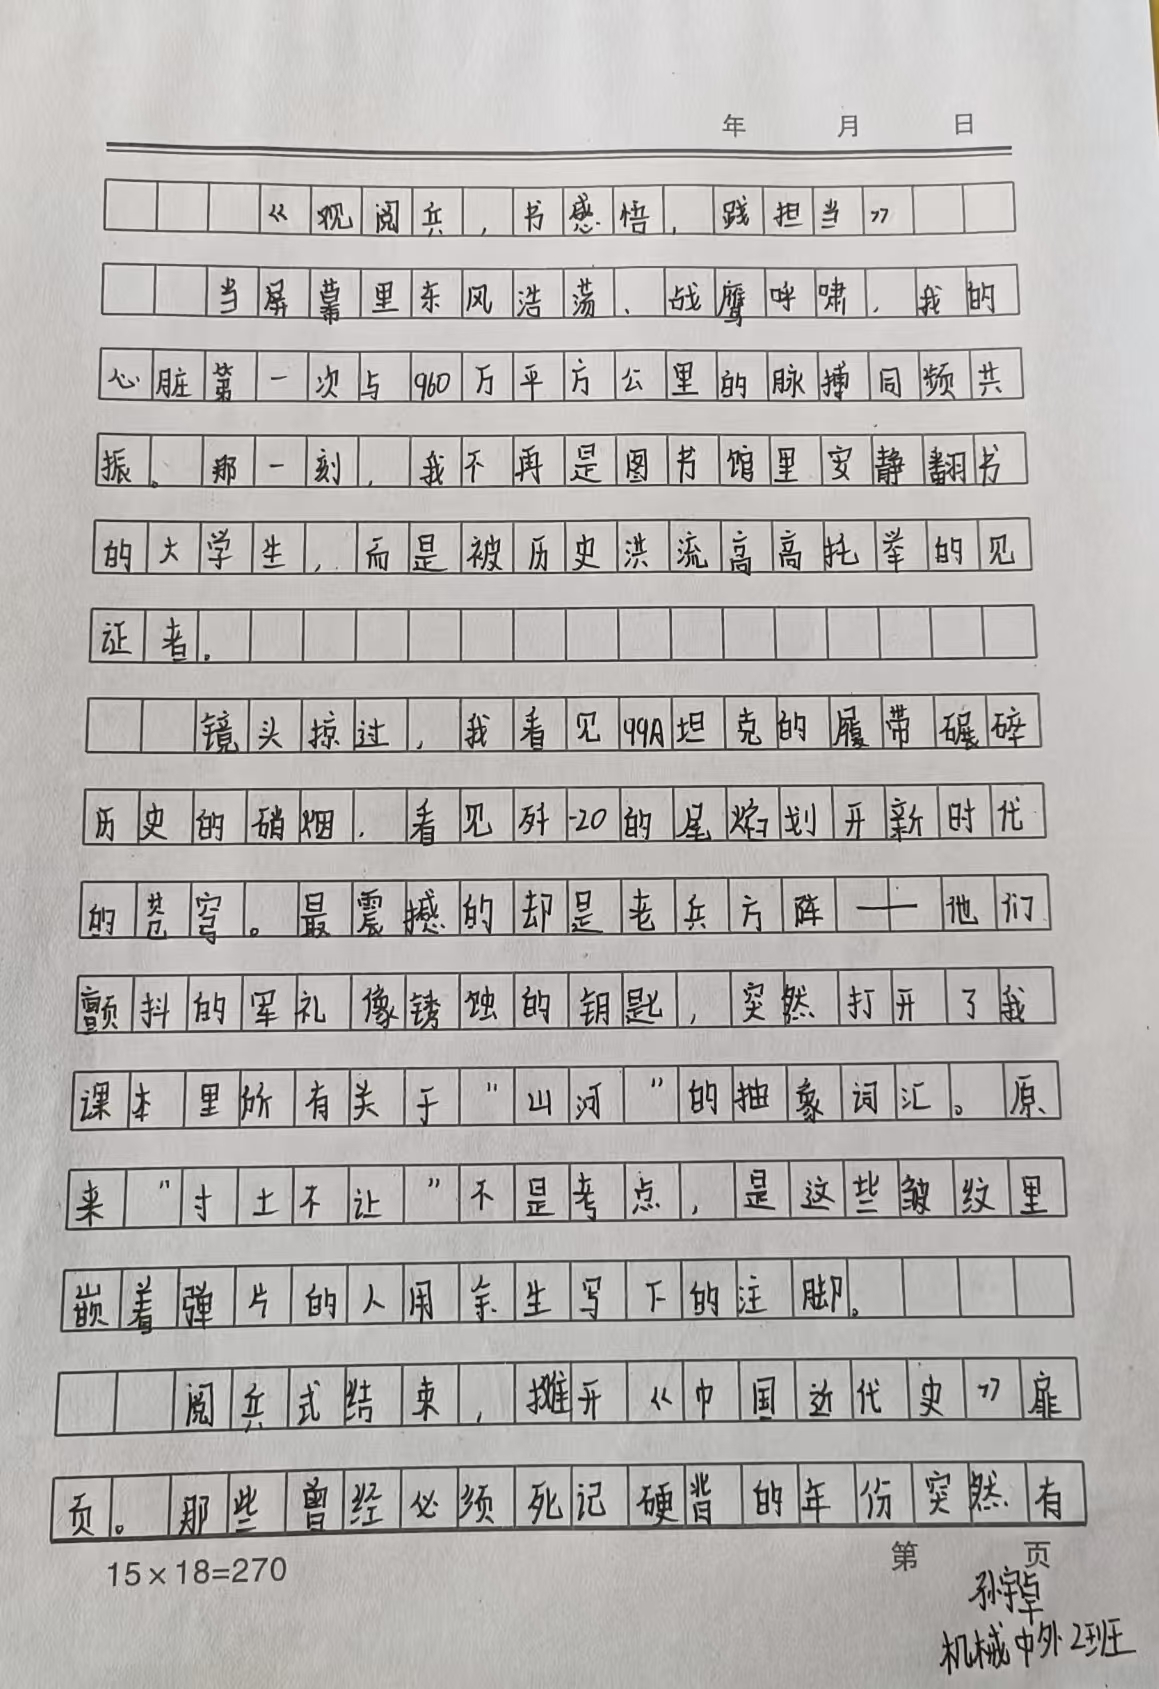 年 月 日
《观阅兵，书感悟，践担当》
当屏幕里东风浩荡、战鹰呼啸，我的
心脏第一次与960万平方公里的脉搏同频共
振。那一刻，我不再是图书馆里安静翻书
的大学生，而是被历史洪流高高托举的见
证者。
镜头掠过，我看见99A坦克的履带碾碎
历史的硝烟，看见歼-20的尾焰划开新时代
的苍穹。最震撼的却是老兵方阵——他们
颤抖的军礼像锈蚀的钥匙，突然打开了我
课本里所有关于"山河"的抽象词汇。原
来"寸土不让"不是考点，是这些皱纹里
嵌着弹片的人用余生写下的注脚。
阅兵式结束，摊开《中国近代史》扉
页。那些曾经必须死记硬背的年份突然有
15×18=270 第 页
孙宇卓
机械中外2班